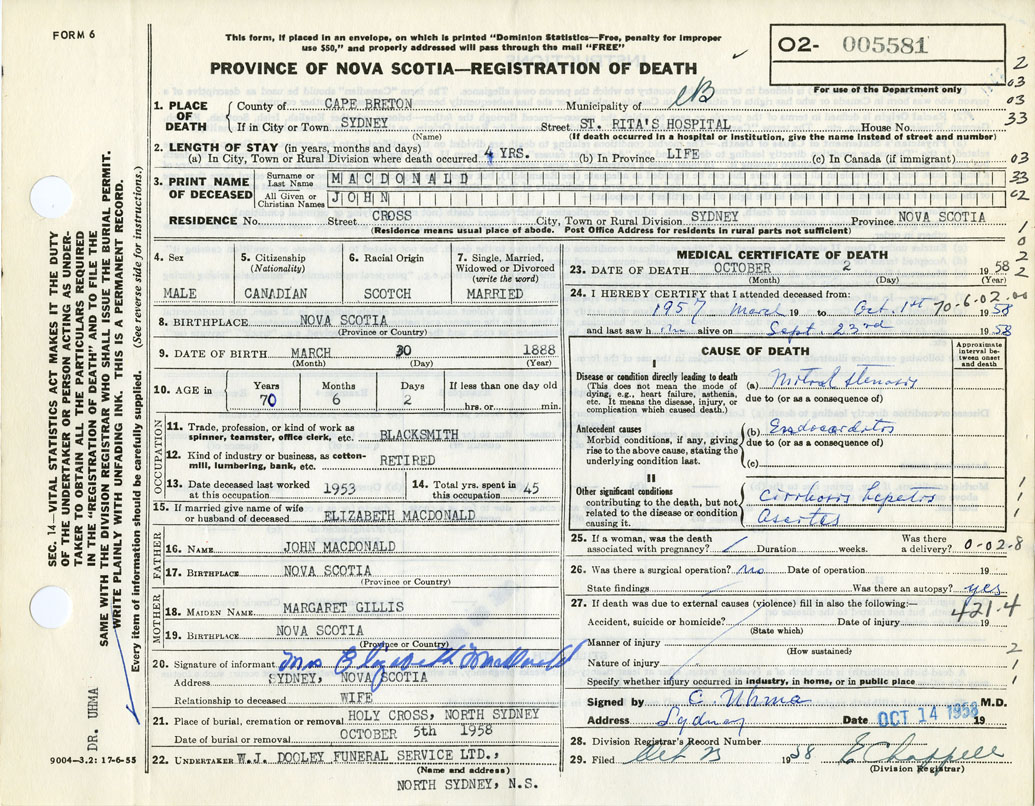 FORM 6
This form, if placed in an envelope, on which is printed "Dominion Statistics—Free, penalty for improper
use $50," and properly addressed will pass through the mail "FREE"
PROVINCE OF NOVA SCOTIA—REGISTRATION OF DEATH
02- 005581
For use of the Department only
2
03
03
33
03
33
02
1
0
2
2
1. PLACE OF DEATH
County of CAPE BRETON Municipality of CB
If in City or Town SYDNEY Street ST. RITA'S HOSPITAL House No.
(Name) (If death occurred in a hospital or institution, give the name instead of street and number)
2. LENGTH OF STAY (in years, months and days)
(a) In City, Town or Rural Division where death occurred 4 YRS. (b) In Province LIFE (c) In Canada (if immigrant)
3. PRINT NAME OF DECEASED
Surname or Last Name MACDONALD
All Given or Christian Names JOHN
RESIDENCE No. Street CROSS City, Town or Rural Division SYDNEY Province NOVA SCOTIA
(Residence means usual place of abode. Post Office Address for residents in rural parts not sufficient)
4. Sex MALE
5. Citizenship (Nationality) CANADIAN
6. Racial Origin SCOTCH
7. Single, Married, Widowed or Divorced (write the word) MARRIED
8. BIRTHPLACE NOVA SCOTIA
(Province or Country)
9. DATE OF BIRTH MARCH 30 1888
(Month) (Day) (Year)
10. AGE in Years Months Days If less than one day old
70 6 2 hrs. or min.
OCCUPATION
11. Trade, profession, or kind of work as spinner, teamster, office clerk, etc. BLACKSMITH
12. Kind of industry or business, as cotton-mill, lumbering, bank, etc. RETIRED
13. Date deceased last worked at this occupation 1953
14. Total yrs. spent in this occupation 45
15. If married give name of wife or husband of deceased ELIZABETH MACDONALD
FATHER
16. NAME JOHN MACDONALD
17. BIRTHPLACE NOVA SCOTIA
(Province or Country)
MOTHER
18. MAIDEN NAME MARGARET GILLIS
19. BIRTHPLACE NOVA SCOTIA
(Province or Country)
20. Signature of informant Mrs Elizabeth McDonald
Address SYDNEY, NOVA SCOTIA
Relationship to deceased WIFE
21. Place of burial, cremation or removal HOLY CROSS, NORTH SYDNEY
Date of burial or removal OCTOBER 5th 1958
22. UNDERTAKER W.J. DOOLEY FUNERAL SERVICE LTD.,
(Name and address)
NORTH SYDNEY, N.S.
MEDICAL CERTIFICATE OF DEATH
23. DATE OF DEATH OCTOBER 2 1958
(Month) (Day) (Year)
24. I HEREBY CERTIFY that I attended deceased from:
1957 March 19 to Oct. 1st 1958
70-6-02
and last saw him alive on Sept. 23rd 1958
CAUSE OF DEATH
Approximate interval between onset and death
I
Disease or condition directly leading to death
(This does not mean the mode of dying, e.g., heart failure, asthenia, etc. It means the disease, injury, or complication which caused death.)
(a) Mitral stenosis
due to (or as a consequence of)
Antecedent causes
Morbid conditions, if any, giving rise to the above cause, stating the underlying condition last.
(b) Endocarditis
due to (or as a consequence of)
(c)
II
Other significant conditions
contributing to the death, but not related to the disease or condition causing it.
Cirrhosis hepatis
Ascites
1
1
1
25. If a woman, was the death associated with pregnancy? Duration weeks. Was there a delivery? 0-02-8
26. Was there a surgical operation? no Date of operation 19
State findings Was there an autopsy? yes
27. If death was due to external causes (violence) fill in also the following:—
421.4
Accident, suicide or homicide? Date of injury 19
(State which)
Manner of injury 2
(How sustained)
Nature of injury 1
Specify whether injury occurred in industry, in home, or in public place 1
Signed by C. Uhma M.D.
Address Sydney Date OCT 14 1958 19
28. Division Registrar's Record Number
29. Filed 1958 E Chappell
(Division Registrar)
SEC. 14—VITAL STATISTICS ACT MAKES IT THE DUTY
OF THE UNDERTAKER OR PERSON ACTING AS UNDER-
TAKER TO OBTAIN ALL THE PARTICULARS REQUIRED
IN THE "REGISTRATION OF DEATH" AND TO FILE THE
SAME WITH THE DIVISION REGISTRAR WHO SHALL ISSUE THE BURIAL PERMIT.
WRITE PLAINLY WITH UNFADING INK. THIS IS A PERMANENT RECORD.
Every item of information should be carefully supplied. (See reverse side for instructions.)
DR. UHMA
9004—3.2: 17-6-55